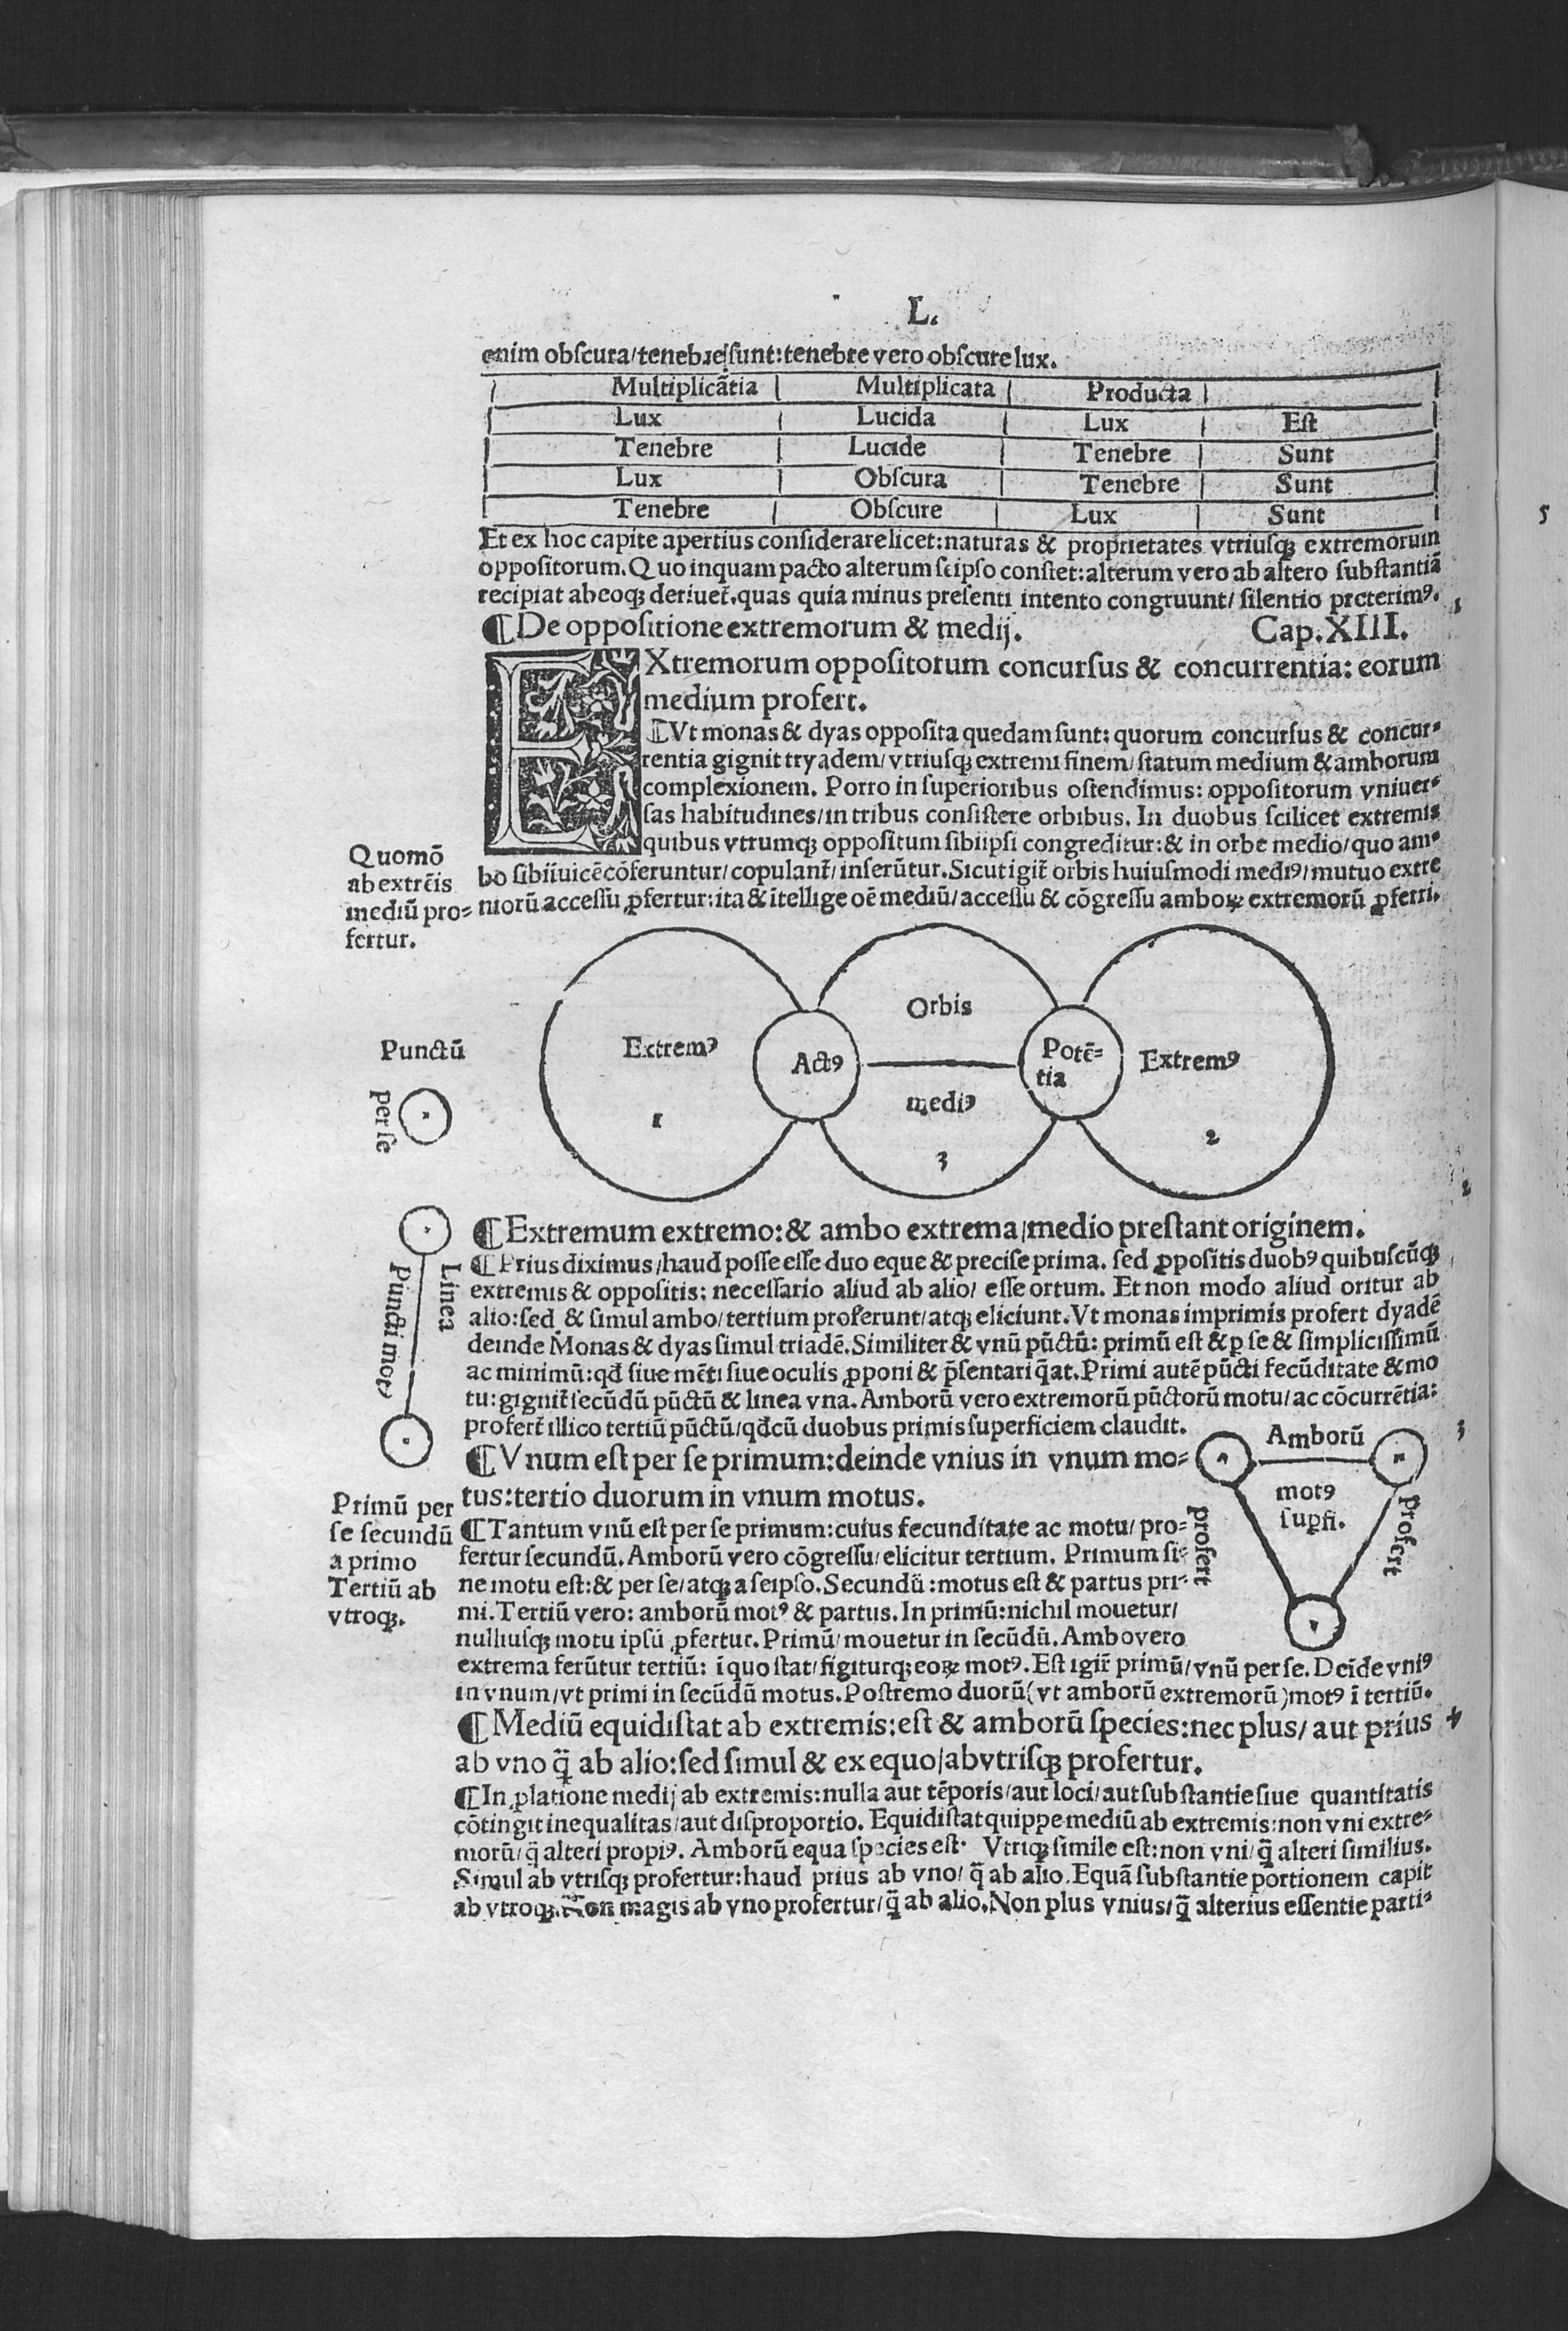 L.
enim obscura/tenebre sunt:tenebre vero obscure lux.
Multiplicãtia | Multiplicata | Producta |
Lux | Lucida | Lux | Est
Tenebre | Lucide | Tenebre | Sunt
Lux | Obscura | Tenebre | Sunt
Tenebre | Obscure | Lux | Sunt
5
Et ex hoc capite apertius considerare licet:naturas & proprietates vtriusqꝫ extremorum
oppositorum.Quo inquam pacto alterum seipso constet:alterum vero ab altero substantiã
recipiat abeoqꝫ deriuet̃.quas quia minus presenti intento congruunt/ silentio preterimꝰ.
¶De oppositione extremorum & medij. Cap.XIII.
1
EXtremorum oppositorum concursus & concurrentia: eorum
medium profert.
¶Vt monas & dyas opposita quedam sunt: quorum concursus & concur-
rentia gignit tryadem/ vtriusqꝫ extremi finem/ statum medium & amborum
complexionem. Porro in superioribus ostendimus: oppositorum vniuer-
sas habitudines/ in tribus consistere orbibus. In duobus scilicet extremis
quibus vtrumqꝫ oppositum sibiipsi congreditur:& in orbe medio/ quo am-
bo sibiiuicẽ cõferuntur/ copulant̃/ inserũtur.Sicut igit̃ orbis huiusmodi mediꝰ/ mutuo extre
morũ accessu ꝓfertur:ita & ĩtellige oẽ mediũ/ accessu & cõgressu amboꝝ extremorũ ꝓferri.
Quomõ
ab extrẽis
mediũ pro=
fertur.
Extremꝰ
1
Actꝰ
Orbis
mediꝰ
3
Potẽ=
tia
Extremꝰ
2
Punctũ
per se
Linea
Puncti motꝰ
2
¶Extremum extremo:& ambo extrema/medio prestant originem.
¶Prius diximus/haud posse esse duo eque & precise prima. sed ꝓpositis duobꝰ quibuscũqꝫ
extremis & oppositis: necessario aliud ab alio/ esse ortum. Et non modo aliud oritur ab
alio:sed & simul ambo/ tertium proferunt/ atqꝫ eliciunt.Vt monas imprimis profert dyadẽ
deinde Monas & dyas simul triadẽ.Similiter & vnũ pũctũ: primũ est & ꝑ se & simplicissimũ
ac minimũ:qđ siue mẽti siue oculis ꝓponi & p̃sentari q̃at.Primi autẽ pũcti fecũditate & mo
tu:gignit̃ secũdũ pũctũ & linea vna.Amborũ vero extremorũ pũctorũ motu/ ac cõcurrẽtia:
profert̃ illico tertiũ pũctũ/qđcũ duobus primis superficiem claudit.
3
¶Vnum est per se primum:deinde vnius in vnum mo=
tus:tertio duorum in vnum motus.
Amborũ
motꝰ
suꝑfi.
profert
profert
Primũ per
se secundũ
a primo
Tertiũ ab
vtroqꝫ.
¶Tantum vnũ est per se primum:cuius fecunditate ac motu/ pro=
fertur secundũ.Amborũ vero cõgressu/elicitur tertium. Primum si=
ne motu est:& per se/atqꝫ a seipso.Secundũ:motus est & partus pri-
mi.Tertiũ vero: amborũ motꝰ & partus.In primũ:nichil mouetur/
nulliusqꝫ motu ipsũ ꝓfertur.Primũ/mouetur in secũdũ.Ambo vero
extrema ferũtur tertiũ: ĩ quo stat/ figiturqꝫ eoꝝ motꝰ.Est igit̃ primũ/ vnũ per se.Deĩde vniꝰ
in vnum/vt primi in secũdũ motus.Postremo duorũ(vt amborũ extremorũ)motꝰ ĩ tertiũ.
4
¶Mediũ equidistat ab extremis:est & amborũ species:nec plus/ aut prius
ab vno q̃ ab alio:sed simul & ex equo/ab vtrisqꝫ profertur.
¶In ꝓlatione medij ab extremis:nulla aut tẽporis/aut loci/aut substantie siue quantitatis
cõtingit inequalitas/aut disproportio. Equidistat quippe mediũ ab extremis:non vni extre-
morũ/ q̃ alteri propiꝰ. Amborũ equa species est. Vtriqꝫ simile est:non vni/ q̃ alteri similius.
Simul ab vtrisqꝫ profertur:haud prius ab vno/ q̃ ab alio.Equã substantie portionem capit
ab vtroqꝫ.Non magis ab vno profertur/ q̃ ab alio.Non plus vnius/ q̃ alterius essentie parti-